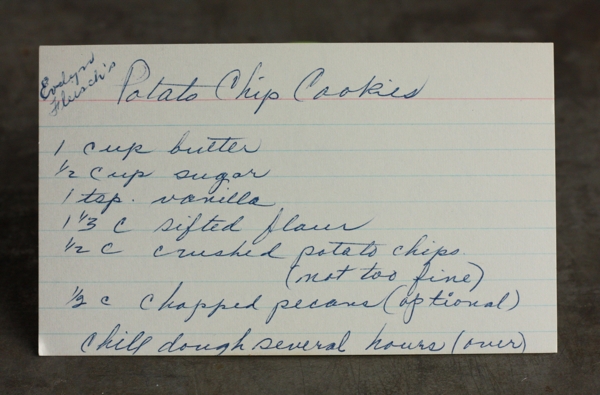 Evelyn
Fleisch's
Potato Chip Cookies
1 cup butter
1/2 cup sugar
1 tsp. vanilla
1 1/3 c sifted flour
1/2 c crushed potato chips.
(not too fine)
1/2 c chopped pecans (optional)
Chill dough several hours (over)